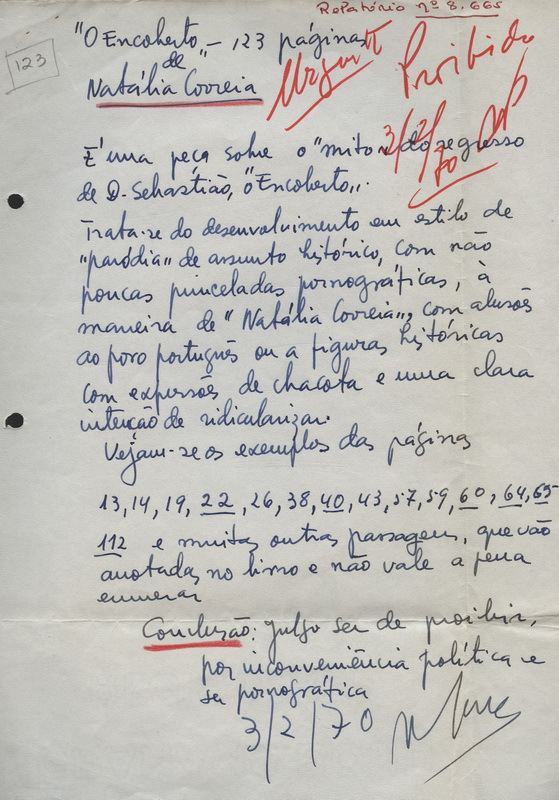 Relatório nº 8.665
123
"O Encoberto" – 123 páginas
de
Natália Correia
Proibido
3/2/70
É uma peça sobre o "mito" do regresso
de D. Sebastião, "o Encoberto".
Trata-se do desenvolvimento em estilo de
"paródia" de assunto histórico, com não
poucas pinceladas pornográficas, à
maneira de "Natália Correia", com alusões
ao povo português ou a figuras históricas
com expressões de chacota e uma clara
intenção de ridicularizar.
Vejam-se os exemplos das páginas
13, 14, 19, 22, 26, 38, 40, 43, 57, 59, 60, 64, 65
112 e muitas outras passagens, que vão
anotadas no livro e não vale a pena
enumerar
Conclusão: julgo ser de proibir,
por inconveniência política e
ser pornográfica
3/2/70